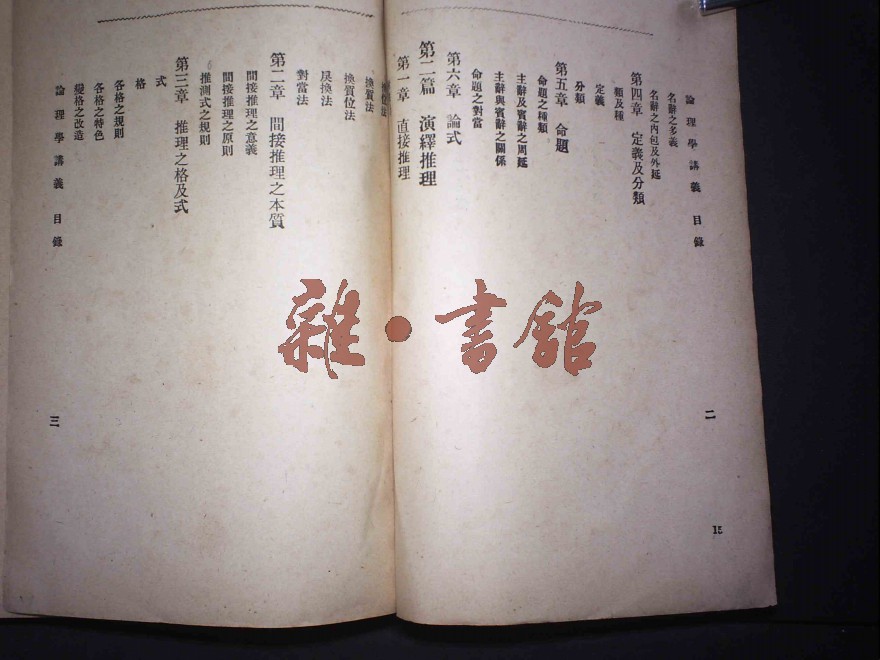 論理學講義 目錄
二
名辭之多義
名辭之內包及外延
第四章 定義及分類
類及種
定義
分類
第五章 命題
命題之種類
主辭及賓辭之周延
主辭與賓辭之關係
命題之對當
第六章 論式
第二篇 演繹推理
第一章 直接推理
換質法
換質位法
戾換法
對當法
第二章 間接推理之本質
間接推理之意義
間接推理之原則
推測式之規則
第三章 推理之格及式
式
格
各格之規則
各格之特色
變格之改造
論理學講義 目錄
三
15
雜·書館